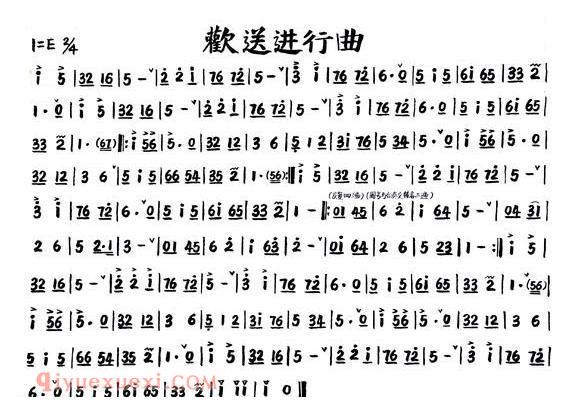 歡送进行曲
1=E 2/4
i 5 |32 16 |5 - |2 2 i |76 72 |5 - |3 i |76 72 |6 · 0 |5 i 5 |6i 65 |33 2 |
1 · 0 | i 5 |32 16 |5 - |2 2 i |76 72 |5 - |3 i |76 72 |6 · 0 |5 i 5 |6i 65 |
33 2 |1 · (67) |: i 56 |5 · 0 |32 12 |3 6 |5 12 |3i 76 |5 34 |5 · 0 |i 56 |5 · 0 |
32 12 |3 6 |5 i 5 |66 54 |35 2 |1 · (56) :| i 5 |32 16 |5 - |2 2 i |76 72 |5 - |
3 i |76 72 |6 · 0 |5 i 5 |6i 65 |33 2 |1 - |: 01 45 |6 2 |i 64 |5 - |04 31 |
2 6 |5 2·1 |3 - |01 45 |6 2 |i 63 |2 - |0i 64 |2 6 |5 23 |1 - :| i 5 |
32 16 |5 - |2 2 i |76 72 |5 - |3 i |76 72 |6 · 0 |5 i 5 |6i 65 |33 2 |1 · (56) |
i 56 |5 · 0 |32 12 |3 6 |5 12 |3i 76 |5 34 |5 · 0 |i 56 |5 · 0 |32 12 |3 6 |
5 i 5 |66 54 |35 2 |1 · 0 | i 5 |32 16 |5 - |2 2 i |76 72 |5 - |3 i |76 72 |
6 · 0 |5 i 5 |6i 65 |33 2 |i i i |i i |i 0 ‖
qiyuexuexi.COM